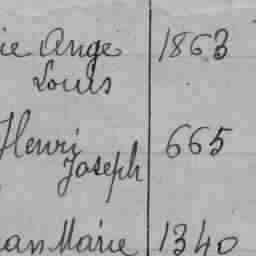 ie Ange 1863
Louis
Henri 665
Joseph
an Marie 1340